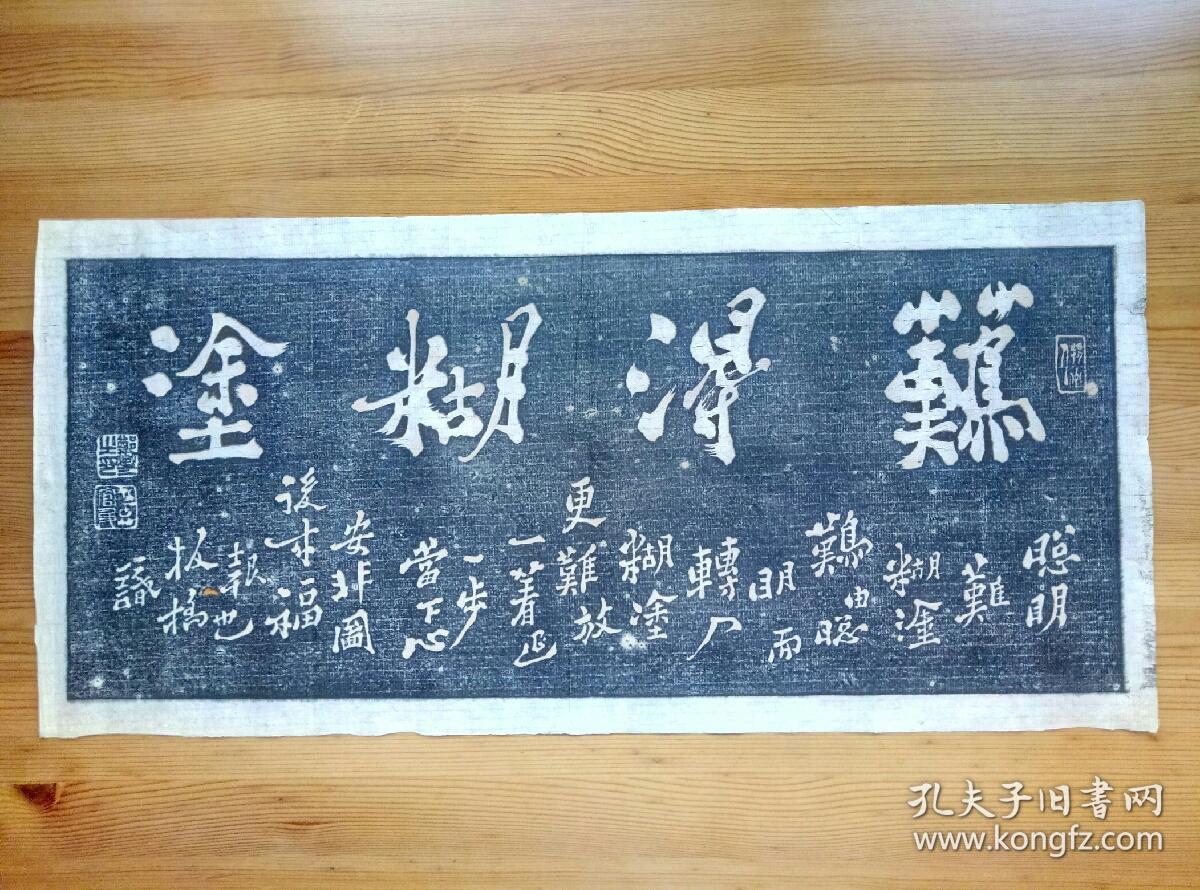 難得糊塗
聰明
難
糊塗
難由聰
明而
轉入
糊塗
更難放
一着退
一步
當下心
安非圖
後來福
報也
板橋
識
鄭燮之印
孔夫子旧書网
www.kongfz.com